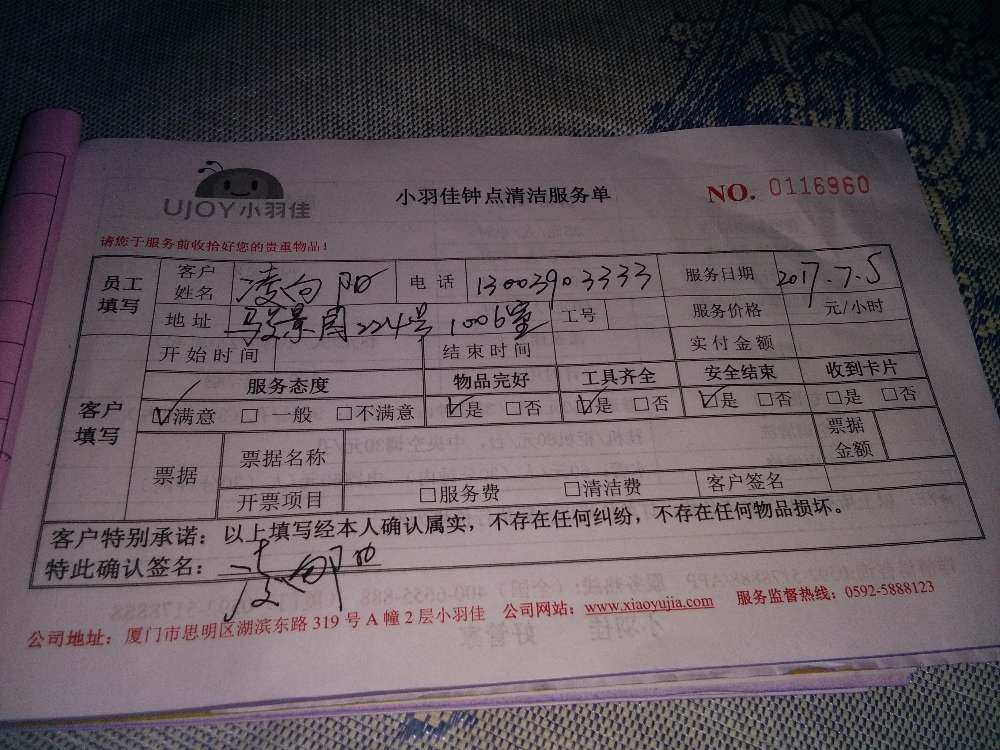 UJOY小羽佳
小羽佳钟点清洁服务单
NO. 0116960
请您于服务前收拾好您的贵重物品!
员工填写 客户姓名 凌向阳 电话 13003903333 服务日期 2017.7.5
地址 景园224号1006室 工号 服务价格 元/小时
客户填写 开始时间 结束时间 实付金额
服务态度 物品完好 工具齐全 安全结束 收到卡片
☑满意 □一般 □不满意 ☑是 □否 ☑是 □否 ☑是 □否 □是 □否
票据 票据名称 票据金额
开票项目 □服务费 □清洁费 客户签名
客户特别承诺：以上填写经本人确认属实，不存在任何纠纷，不存在任何物品损坏。
特此确认签名：凌向阳
公司地址：厦门市思明区湖滨东路319号A幢2层小羽佳 公司网站：www.xiaoyujia.com 服务监督热线：0592-5888123